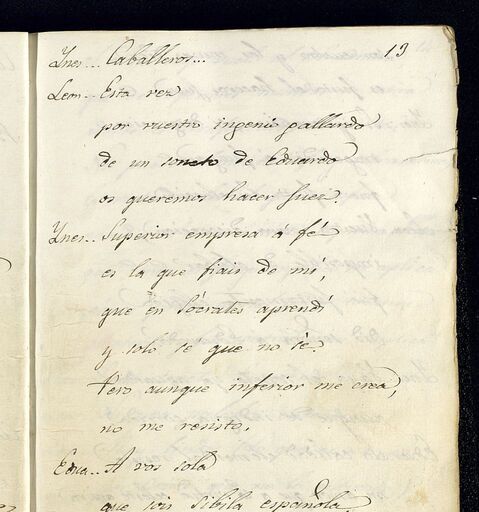 13
Ynes.. Caballeros...
Leon.. Esta vez
por vuestro ingenio gallardo
de un soneto de Eduardo
os queremos hacer Juez
Ynes.. Superior empresa a fé
es la que fiais de mí,
que en Sócrates aprendí
y solo se que no sé.
Pero aunque inferior me crea,
no me resisto.
Edua.. A vos sola
que sois sibila española,